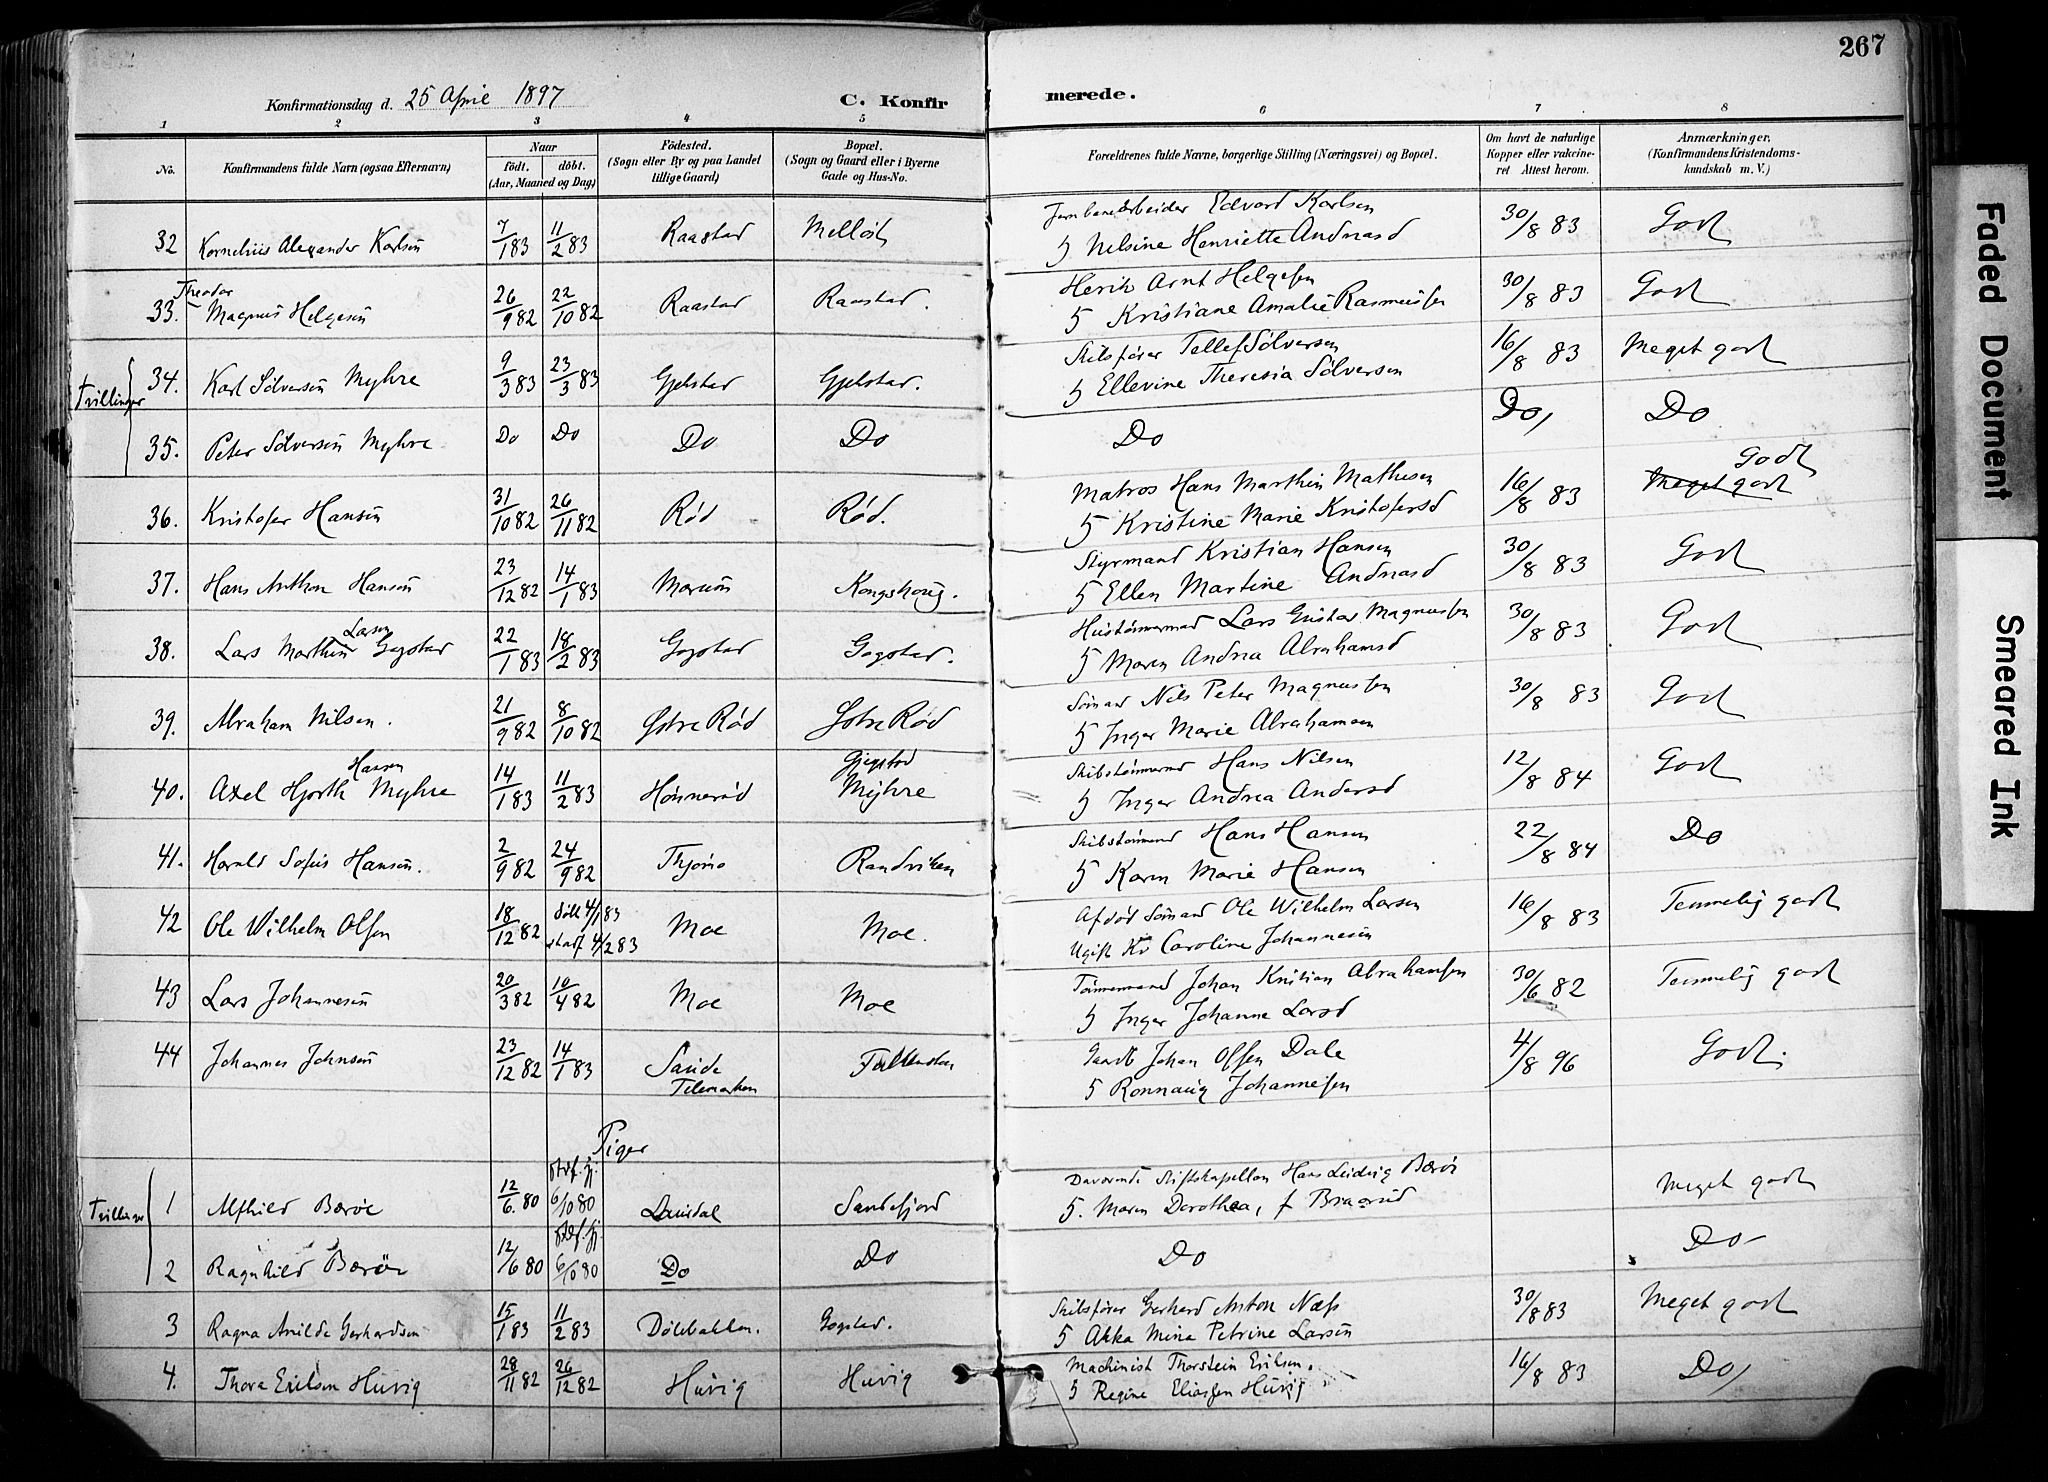 267
Konfirmationsdag d. 25 April 1897 C. Konfir merede.
1 2 3 4 5 6 7 8
No. | Konfirmandens fulde Navn (ogsaa Efternavn) | Naar født. døbt. (Aar, Maaned og Dag) | Fødested. (Sogn eller By og paa Landet tillige Gaard) | Bopæl. (Sogn og Gaard eller i Byerne Gade og Hus-No. | Forældrenes fulde Navne, borgerlige Stilling (Næringsvei) og Bopæl. | Om havt de naturlige Kopper eller vaccineret Attest herom. | Anmærkninger. (Konfirmandens Kristendomskundskab m. V.)
32 Kornelius Alexander Karlsen 7/1 83 11/2 83 Raastad Melløst Jernbanearbeider Edvard Karlsen 30/8 83 Godt
5 Nelsine Henriette Andreasd
33. Theodor Magnus Helgesen 26/9 82 22/10 82 Raastad Raastad. Henrik Arnt Helgesen 30/8 83 Godt
5 Kristiane Amalie Rasmussen
Tvillinger
34. Karl Sølversen Myhre 9/3 83 23/3 83 Gjekstad Gjekstad. Skibsfører Tellef Sølversen 16/8 83 Meget godt
5 Ellevine Theresia Sølversen
35. Peter Sølversen Myhre Do Do Do Do Do Do, Do
36. Kristofer Hansen 31/10 82 26/11 82 Rød Rød. Matros Hans Marthin Mathisen 16/8 83 Meget godt Godt
5 Kristine Marie Kristofersd
37. Hans Anthon Hansen 23/12 82 14/1 83 Morum Kongshoug. Styrmand Kristian Hansen 30/8 83 Godt
5 Ellen Martine Andreasd
38. Lars Marthin Larsen Gogstad 22/1 83 18/2 83 Gogstad Gogstad. Hustømmermd Lars Gustav Magnussen 30/8 83 Godt
5 Maren Andrea Abrahamsd
39. Abraham Nilsen. 21/9 82 8/10 82 Østre Rød Østre Rød Sømand Nils Peter Magnussen 30/8 83 Godt
5 Inger Marie Abrahamsen
40. Axel Hjorth Hansen Myhre 14/1 83 11/2 83 Hønnerød Gjegstad Myhre Skibstømmermd Hans Nilsen 12/8 84 Godt
5 Inger Andrea Andersd
41. Harald Sofus Hansen. 2/9 82 24/9 82 Thjømø Randviken Skibstømmermd Hans Hansen 22/8 84 Do
5 Karen Marie Hansen
42 Ole Wilhelm Olsen 18/12 82 døbt 4/1 83 stadf 4/2 83 Moe Moe. Afdød Sømand Ole Wilhelm Larsen 16/8 83 Temmelig godt
Ugift Kv Caroline Johannesen
43 Lars Johannesen 20/3 82 10/4 82 Moe Moe Tømmermand Johan Kristian Abrahamsen 30/6 82 Temmelig godt
5 Inger Johanne Larsd
44 Johannes Johnsen 23/12 82 14/1 83 Saude Telemarken Falkensten Gaardb Johan Olsen Dale 4/8 96 Godt.
5 Ronnaug Johannesen
Piger
Tvillinger
1 Alfhild Bærøe 12/6. 80 stadf. Kj. 6/10 80 Lauidal Sandefjord Daværende Stiftskapellan Hans Ludvig Bærøe Meget godt
5. Maren Dorothea, f Braarud
2 Ragnhild Bærøe 12/6 80 6/10 80 Do Do Do Do
3 Ragna Anilde Gerhardsen 15/1 83 11/2 83 Dølebakken. Gogstad. Skibsfører Gerhard Anton Næss 30/8 83 Meget godt
5 Akka Mina Petrine Larsen
4. Thora Erilsen Huvig 28/11 82 26/12 82 Huvig Huvig Machinist Thorstein Erilsen. 16/8 83 Do,
5 Regine Eliassen Huvig
Faded Document
Smeared Ink